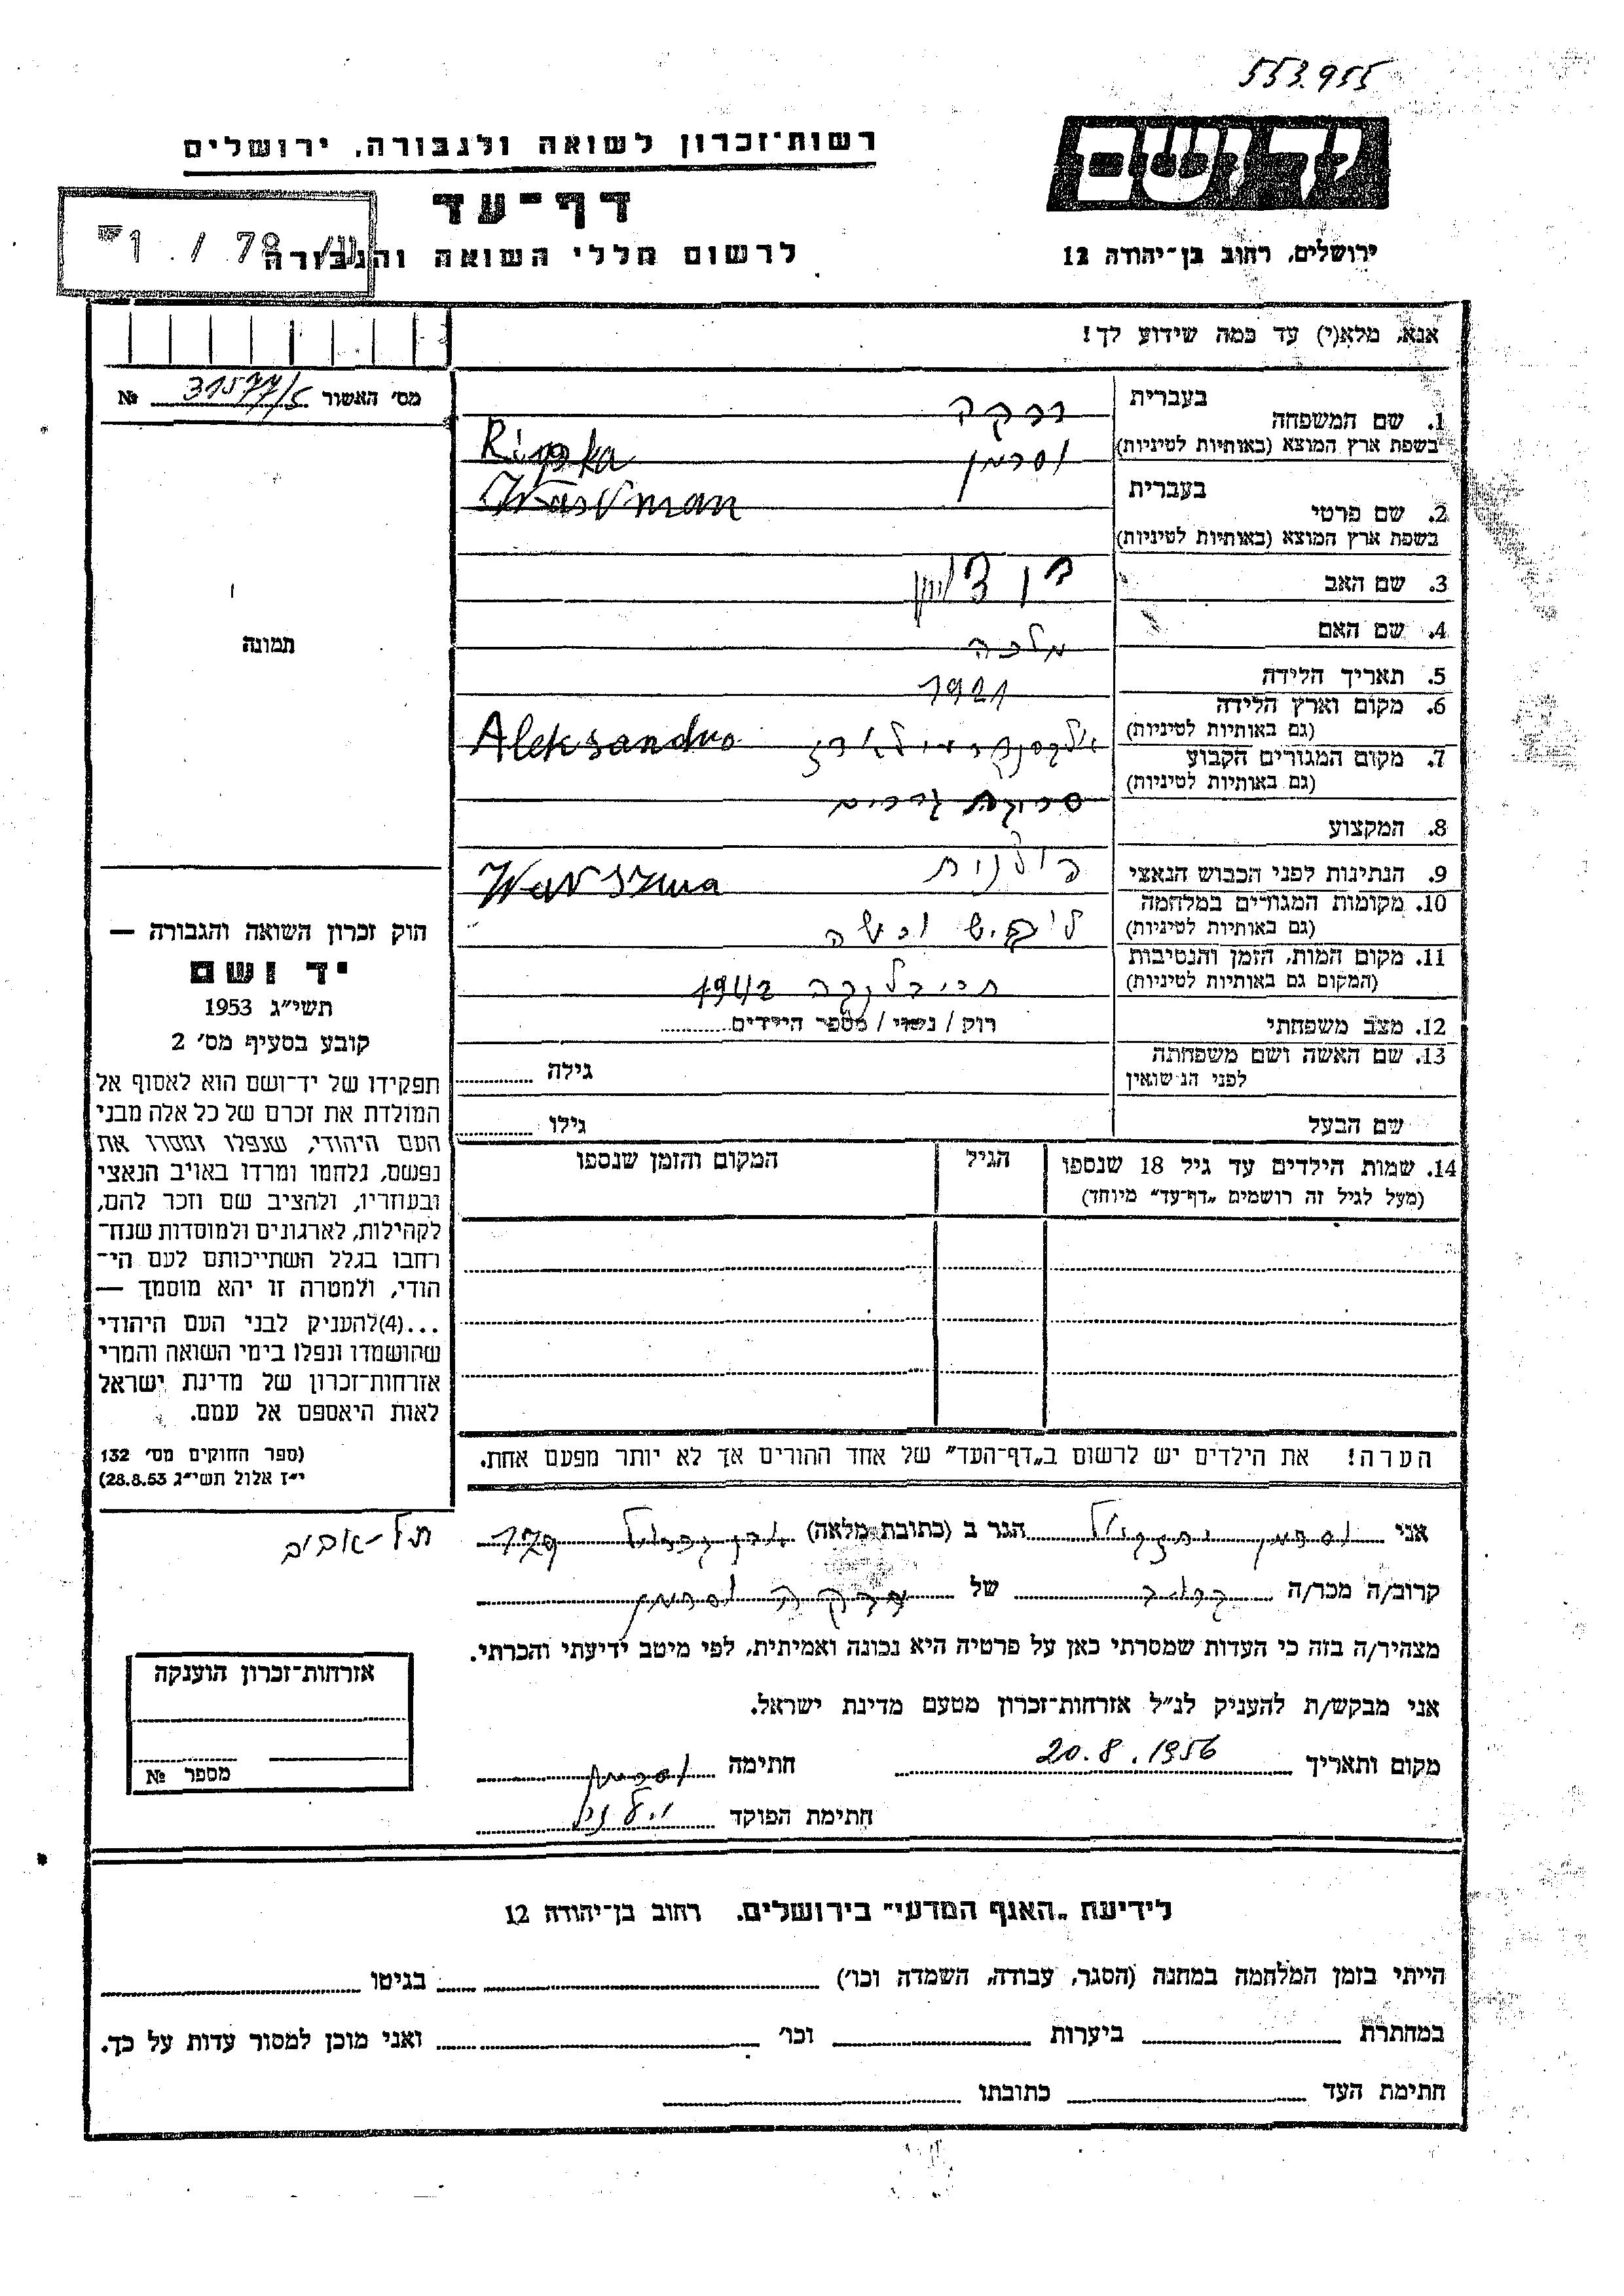 553.955
רשות־זכרון לשואה ולגבורה, ירושלים
יד ושם
דף־עד
לרשום חללי השואה והגבורה
ירושלים, רחוב בן־יהודה 12
אנא, מלא(י) עד כמה שידוע לך!
מס׳ האשור 31577/5 №
1. שם המשפחה
בעברית רבקה
בשפת ארץ המוצא (באותיות לטיניות) וסרמן Riwka
2. שם פרטי
בעברית Wasserman
בשפת ארץ המוצא (באותיות לטיניות)
3. שם האב בן ציון
4. שם האם מלכה
5. תאריך הלידה 1921
6. מקום וארץ הלידה
(גם באותיות לטיניות) Aleksandro
7. מקום המגורים הקבוע
(גם באותיות לטיניות)
8. המקצוע
9. הנתינות לפני הכבוש הנאצי פולנית Warszwa
10. מקומות המגורים במלחמה
(גם באותיות לטיניות)
11. מקום המות, הזמן והנסיבות
(המקום גם באותיות לטיניות) טריבלינקה 1942
12. מצב משפחתי רוק / נשוי / מספר הילדים
13. שם האשה ושם משפחתה
לפני הנישואין גילה
שם הבעל גילו
14. שמות הילדים עד גיל 18 שנספו הגיל המקום והזמן שנספו
(מעל לגיל זה רושמים „דף־עד״ מיוחד)
הערה! את הילדים יש לרשום ב„דף־העד״ של אחד ההורים אך לא יותר מפעם אחת.
תמונה
חוק זכרון השואה והגבורה —
יד ושם
תשי״ג 1953
קובע בסעיף מס׳ 2
תפקידו של יד־ושם הוא לאסוף אל
המולדת את זכרם של כל אלה מבני
העם היהודי, שנפלו ומסרו את
נפשם, נלחמו ומרדו באויב הנאצי
ובעוזריו, ולהציב שם וזכר להם,
לקהילות, לארגונים ולמוסדות שנח־
רחבו בגלל השתייכותם לעם הי־
הודי, ולמטרה זו יהא מוסמך —
...(4)להעניק לבני העם היהודי
שהושמדו ונפלו בימי השואה והמרי
אזרחות־זכרון של מדינת ישראל
לאות היאספם אל עמם.
(ספר החוקים מס׳ 132
י״ז אלול תשי״ג 28.8.53)
אני וסרמן יחזקאל הגר ב (כתובת מלאה) אבן גבירול 179 תל־אביב
קרוב/ה מכר/ה קרוב של רבקה וסרמן
מצהיר/ה בזה כי העדות שמסרתי כאן על פרטיה היא נכונה ואמיתית, לפי מיטב ידיעתי והכרתי.
אני מבקש/ת להעניק לנ״ל אזרחות־זכרון מטעם מדינת ישראל.
מקום ותאריך 20.8.1956 חתימה וסרמן
חתימת הפוקד
אזרחות־זכרון הוענקה
מספר №
לידיעת „האגף המדעי״ בירושלים. רחוב בן־יהודה 12
הייתי בזמן המלחמה במחנה (הסגר, עבודה, השמדה וכו׳) בגיטו
במחתרת ביערות וכו׳ ואני מוכן למסור עדות על כך.
חתימת העד כתובתו